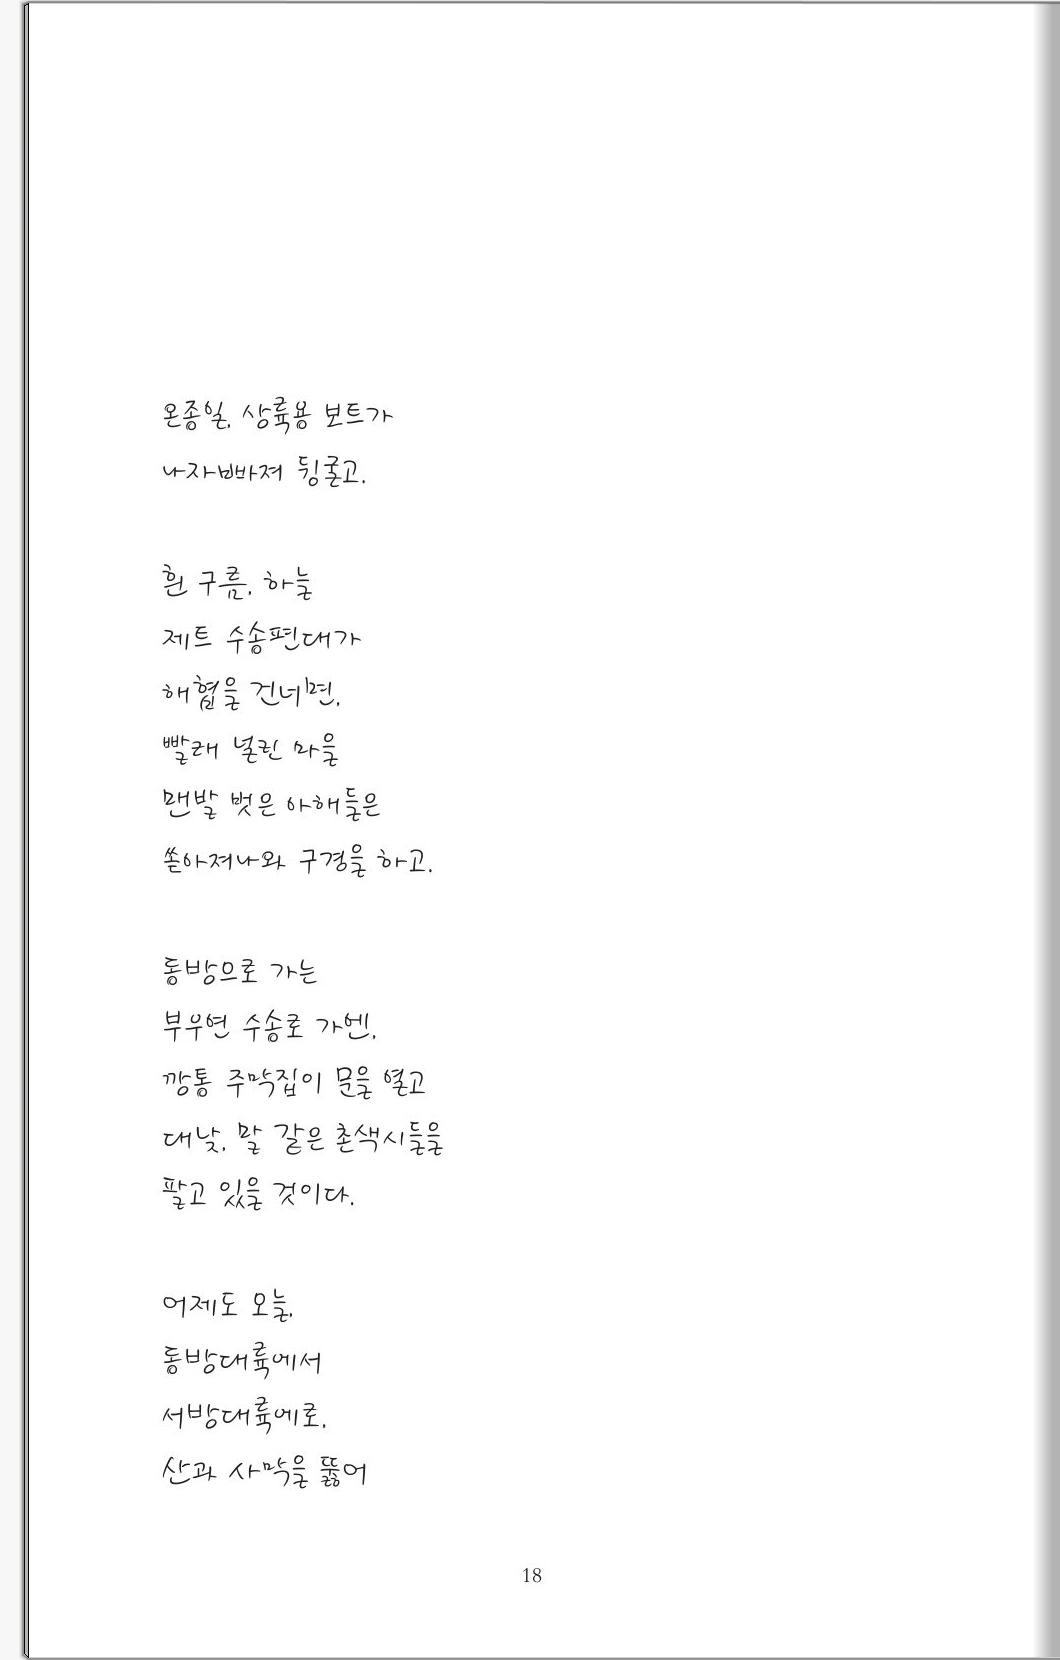 온종일, 상륙용 보트가
나자빠져 뒹굴고.
흰 구름, 하늘
제트 수송편대가
해협을 건너면,
빨래 널린 마을
맨발 벗은 아해들은
쏟아져나와 구경을 하고.
동방으로 가는
부우연 수송로 가엔,
깡통 주막집이 문을 열고
대낮, 말 같은 촌색시들을
팔고 있을 것이다.
어제도 오늘,
동방대륙에서
서방대륙에로,
산과 사막을 뚫어
18